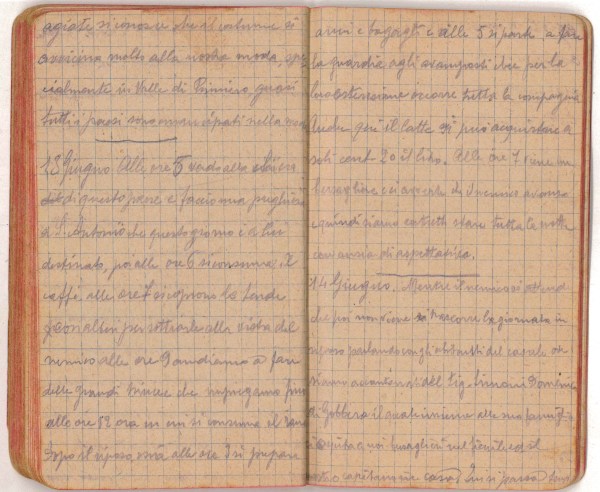 agiate si conosce che al costume si
avvicina molto alla nostra moda, spe
cialmente in Valle di Primiero, quasi
tutti i paesi sono emancipati nella
13 Giugno. Alle ore 5 vado alla chiesa
di questo paese e faccio una preghiera
a S. Antonio che questo giorno è a lui
destinato, poi alle ore 6 si consuma il
caffè, alle ore 7 si coprono le tende
con alberi per sottrarle alla vista del
nemico alle ore 9 andiamo a fare
delle grandi trincee che impiegamo fino
alle ore 12 ora in cui si consuma il
Dopo il riposo, ossia alle ore 3 si prepara
armi e bagagli e alle 5 si parte a fare
la guardia agli avamposti che per la
loro estensione occorre tutta la compagnia
Anche qui il latte si può acquistare a
soli cent 20 il litro. Alle ore 7 viene un
bersagliere e ci avverte che il nemico avanza
e quindi siamo costretti stare tutta la notte
con ansia di aspettativa.
14 Giugno. Mentre il nemico si attend
che poi non viene si trascorre la giornata in
riposo parlando con gli abitanti del casale
siamo accantonati dal Sig. Simoni Domenico
di Gobbera il quale insieme alla sua famiglia
il
nostro capitano in casa, Qui si passa